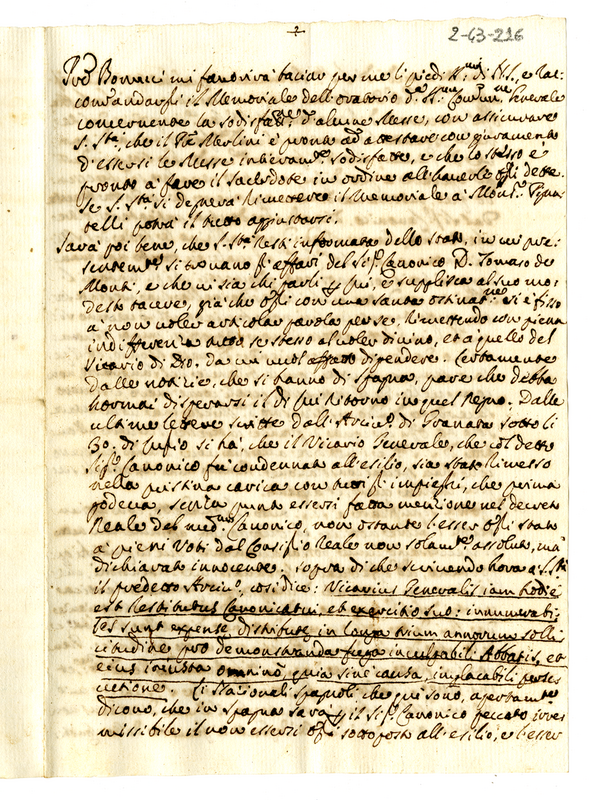 2
2-43-226
Bonucci mi favorirà baciar per me li piedi di N.S., e rac-
comandargli il Memoriale dell'oratorio Generale
concernente la sodisfaz.ne d'alcune Messe, con assicurare
S. Stà, che il Merlini è pronto ad attestare con giuramento
d'essersi le Messe intieram.te sodisfatte, e che lo stesso è
pronto à fare il Sacerdote in ordine all'haverle egli dette.
Se S. Stà si degnerà rimettere il Memoriale à Mons.r Pigna-
telli potrà il tutto aggiustarsi.
Sarà poi bene, che S. Stà resti informata dello stato, in cui pre-
sentem.te si trovano gl'affari del Sig.r Canonico D. Tomaso de
Monti, e che ci sia chi parli p lui, e supplisca al suo mo-
desto tacere, già che egli con una santa ostinat.ne si è fisso
a non voler articolar parola per se, rimettendo con piena
indifferenza tutto se stesso al voler divino, et a quello del
Vicario di Dio, da cui vuol affatto dipendere. Certamente
dalle notizie, che si hanno di Spagna, pare che debba
hormai disperarsi il di lui ritorno in quel Regno. Dalle
ultime lettere scritte dall'Arciv.o di Granata sotto li
30. di Luglio si hà, che il Vicario Generale, che col detto
Sig.r Canonico fù condennato all'esilio, sia stato rimesso
nella pristina carica con tutti gl'impieghi, che prima
godeva, senza punto essersi fatta mentione nel decreto
Reale del med.mo Canonico, non ostante l'esser egli stato
a pieni voti dal Consiglio Reale non solam.te assoluto, mà
dichiarato innocente. Sopra di che scrivendo hora a S. Stà
il predetto Arciv.o, così dice: Vicarius Generalis iam hodie
est restitutus Canonicatui, et exercitio suo: innumerabi-
les sunt expense distributę in longa trium annorum solli-
citudine pro demonstranda fuga inculpabili Abbatis, et
eius iniusta omninò quia sine causa, implacabili perse-
cutione. Gl'Italionali Spagnoli che qui sono, apertam.te
dicono, che in Spagna sarà p il Sig.r Canonico peccato irre-
missibile il non essersi egli sottoposto all'esilio, e l'esser